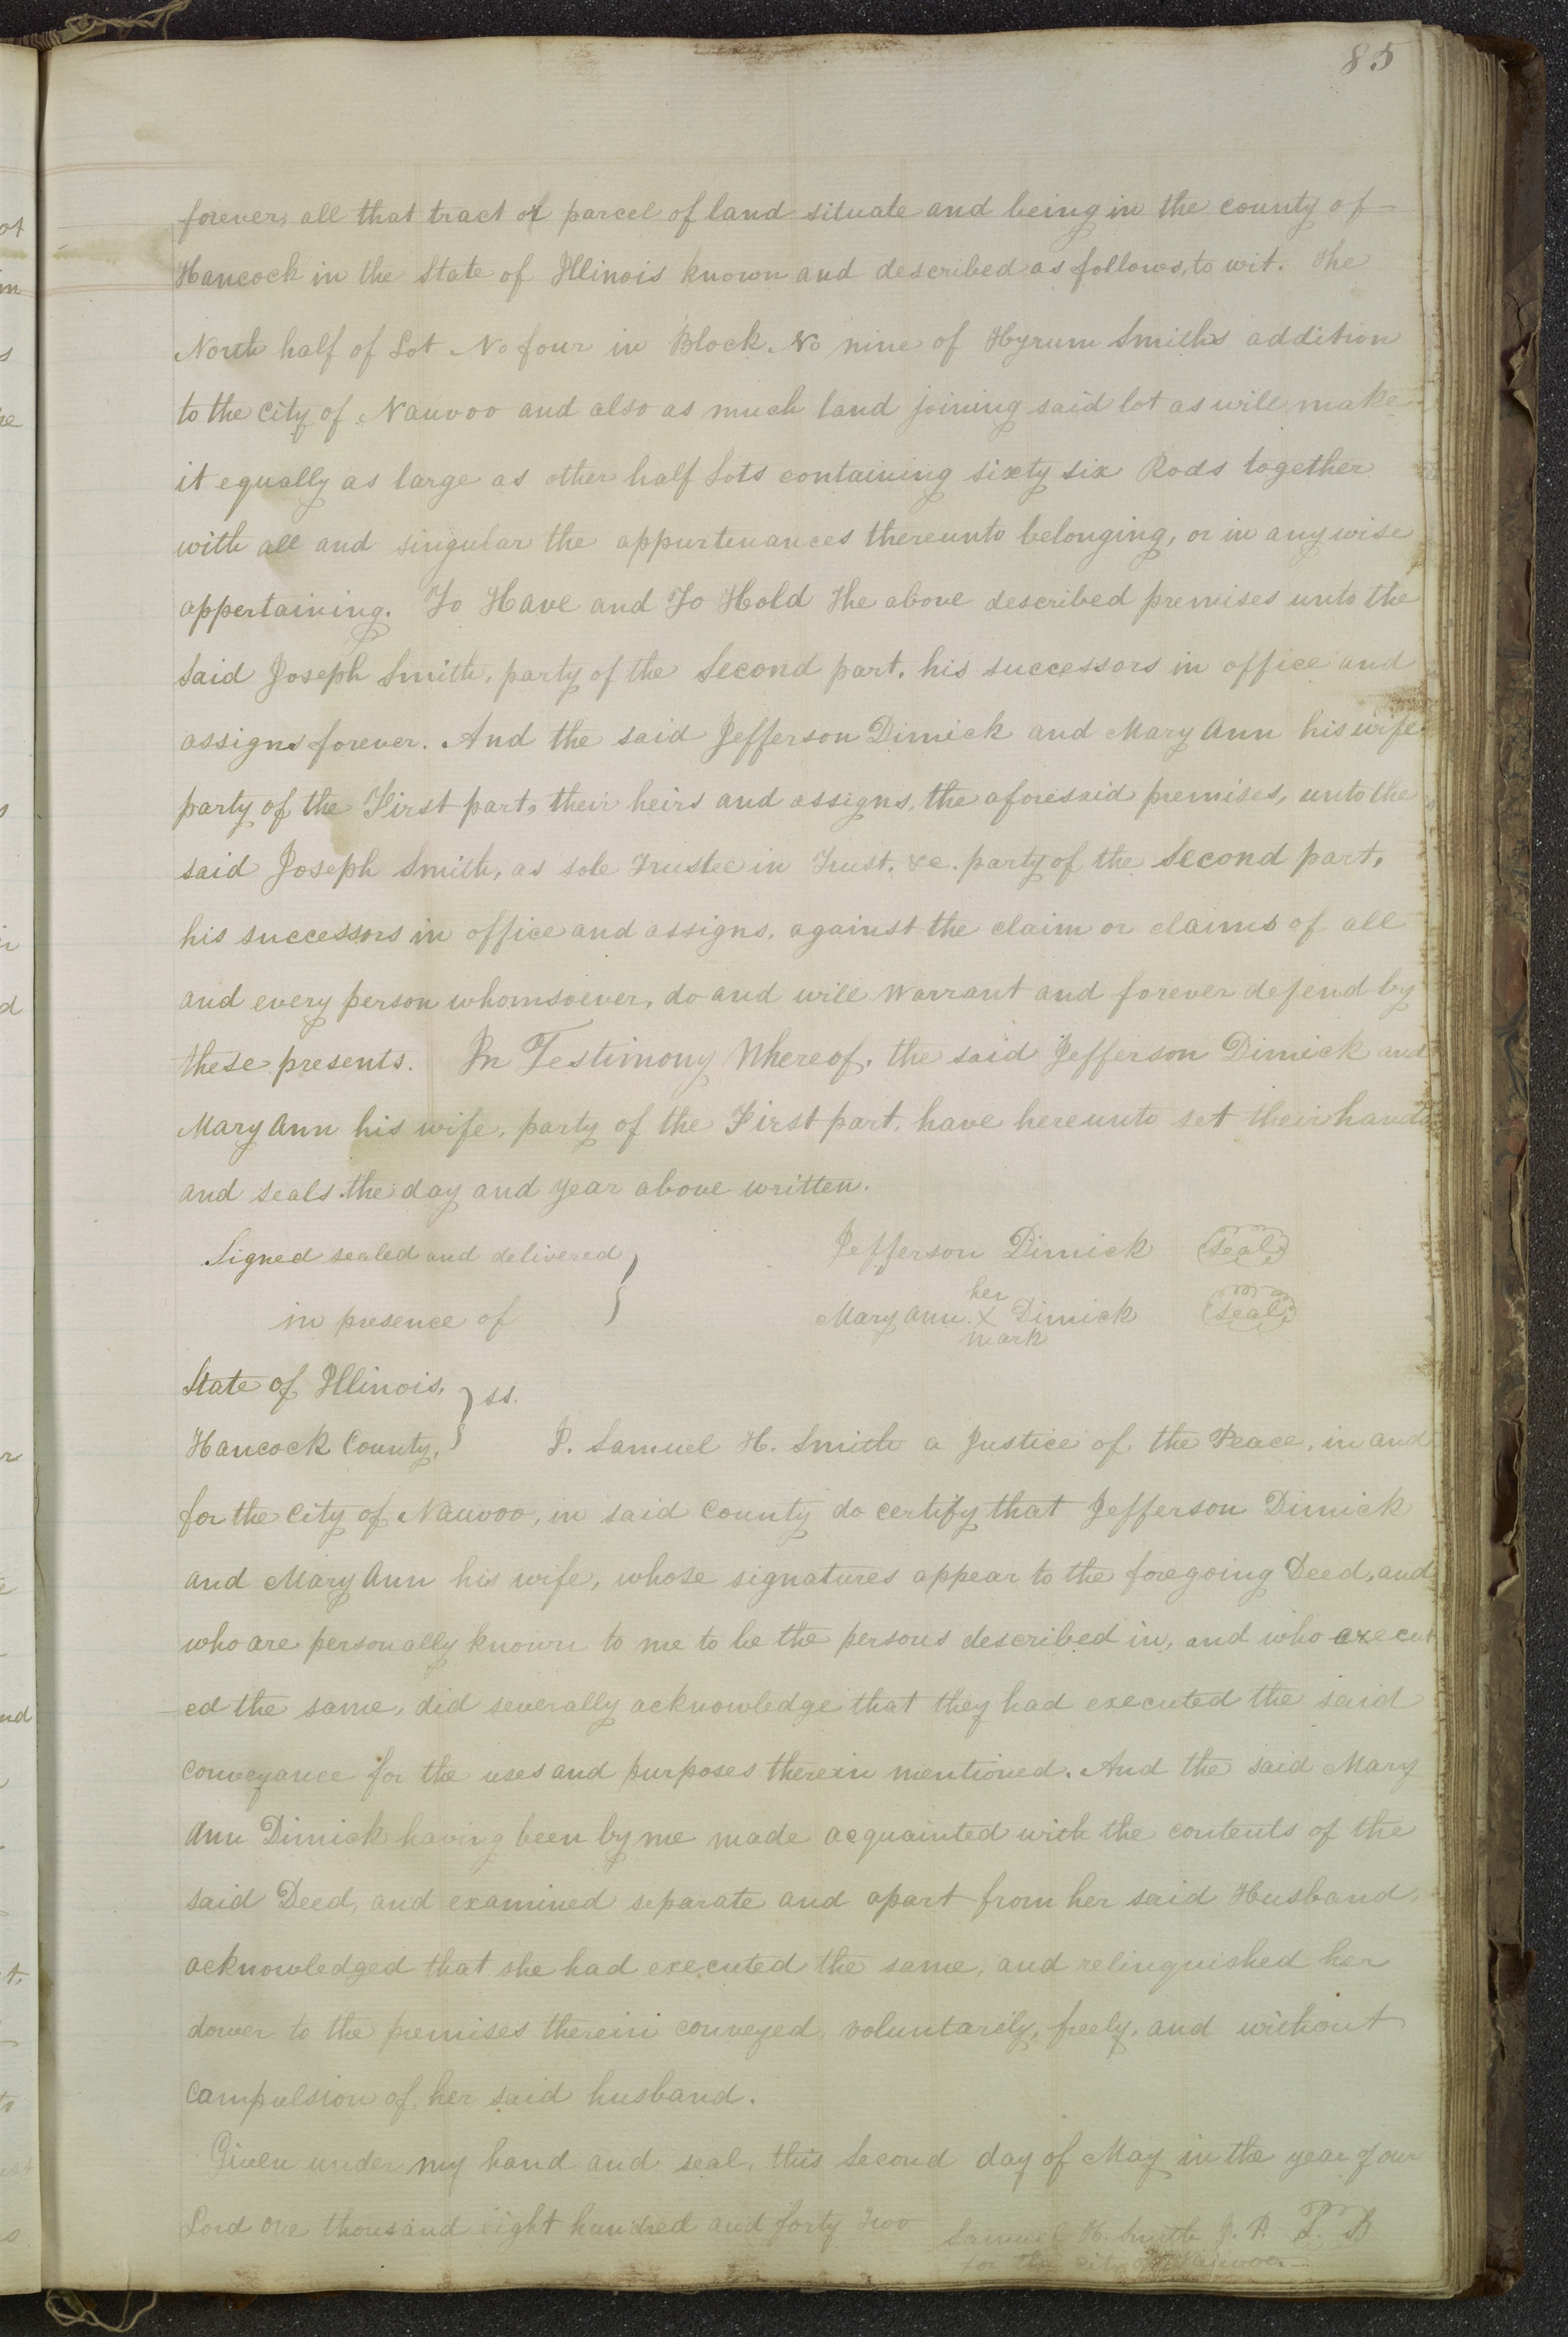 85
forever, all that tract of parcel of land situate and being in the county of
Hancock in the State of Illinois known and described as follows, to wit. The
North half of Lot No four in Block No nine of Hyrum Smiths addition
to the City of Nauvoo and also as much land joining said lot as will make
it equally as large as other half Lots containing sixty six Rods together
with all and singular the appurtenances thereunto belonging, or in any wise
appertaining. To Have and To Hold The above described premises unto the
said Joseph Smith, party of the Second part, his successors in office and
assigns forever. And the said Jefferson Dimick and Mary Ann his wife
party of the First part, their heirs and assigns, the aforesaid premises, unto the
said Joseph Smith, as sole Trustee in Trust, &c. party of the Second part,
his successors in office and assigns, against the claim or claims of all
and every person whomsoever, do and will Warrant and forever defend by
these presents. In Testimony Whereof, the said Jefferson Dimick and
Mary Ann his wife, party of the First part, have hereunto set their hands
and seals the day and year above written.
Signed sealed and delivered } Jefferson Dimick (Seal)
in presence of } Mary Ann her X mark Dimick (Seal)
State of Illinois, } ss.
Hancock County, } I. Samuel H. Smith a Justice of the Peace, in and
for the City of Nauvoo, in said County do certify that Jefferson Dimick
and Mary Ann his wife, whose signatures appear to the foregoing Deed, and
who are personally known to me to be the persons described in, and who execut
ed the same, did severally acknowledge that they had executed the said
conveyance for the uses and purposes therein mentioned. And the said Mary
Ann Dimick having been by me made acquainted with the contents of the
said Deed, and examined separate and apart from her said Husband,
acknowledged that she had executed the same, and relinquished her
dower to the premises therein conveyed, voluntarily, freely, and without
compulsion of her said husband.
Given under my hand and seal, this Second day of May in the year of our
Lord one thousand eight hundred and forty Two Samuel H. Smith J. P. L. S
for the city of Nauvoo.